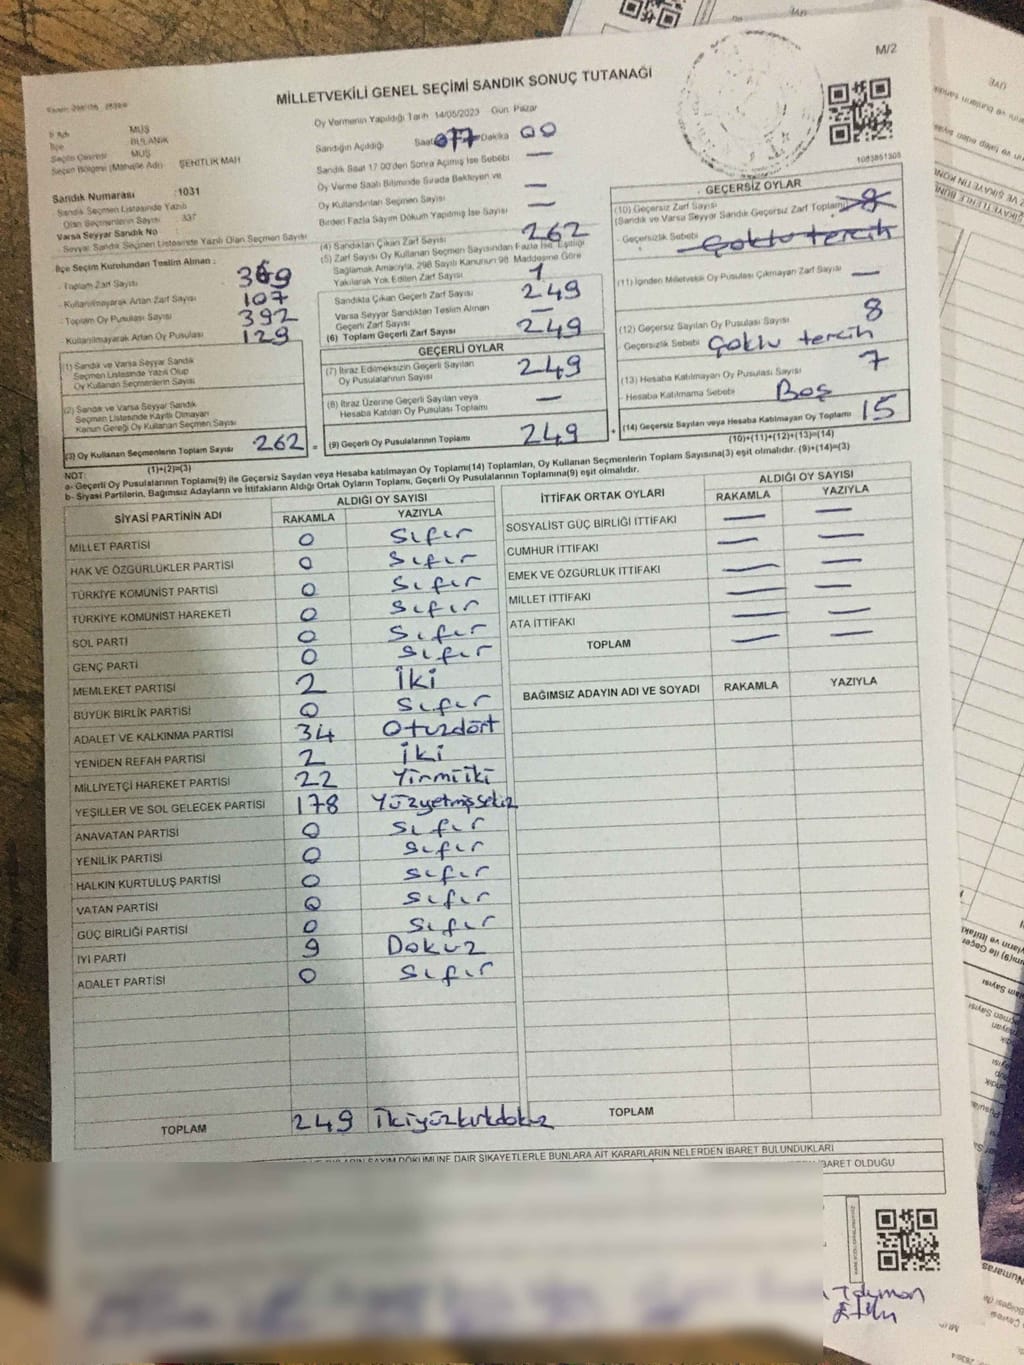 M/2
MİLLETVEKİLİ GENEL SEÇİMİ SANDIK SONUÇ TUTANAĞI
İl Adı MUŞ
İlçe BULANIK
Seçim Çevresi MUŞ
Seçim Bölgesi (Mahalle Adı) ŞEHİTLİK MAH
Sandık Numarası : 1031
Sandık Seçmen Listesinde Yazılı
Olan Seçmenlerin Sayısı 337
Varsa Seyyar Sandık No
Seyyar Sandık Seçmen Listesinde Yazılı Olan Seçmen Sayısı
İlçe Seçim Kurulundan Teslim Alınan :
- Toplam Zarf Sayısı
- Kullanılmayarak Artan Zarf Sayısı 107
- Toplam Oy Pusulası Sayısı 392
- Kullanılmayarak Artan Oy Pusulası 129
(1) Sandık ve Varsa Seyyar Sandık
Seçmen Listesinde Yazılı Olup
Oy Kullanan Seçmenlerin Sayısı
(2) Sandık ve Varsa Seyyar Sandık
Seçmen Listesinde Kayıtlı Olmayan
Kanun Gereği Oy Kullanan Seçmen Sayısı
(3) Oy Kullanan Seçmenlerin Toplam Sayısı 262 =
(1)+(2)=(3)
Oy Vermenin Yapıldığı Tarih 14/05/2023 Gün Pazar
Sandığın Açıldığı Saat Dakika 00
Sandık Saat 17 00'den Sonra Açılmış İse Sebebi —
Oy Verme Saati Bitiminde Sırada Bekleyen ve
Oy Kullandırılan Seçmen Sayısı —
Birden Fazla Sayım Döküm Yapılmış İse Sayısı —
(4) Sandıktan Çıkan Zarf Sayısı 262
(5) Zarf Sayısı Oy Kullanan Seçmen Sayısından Fazla İse, Eşitliği
Sağlamak Amacıyla, 298 Sayılı Kanunun 98. Maddesine Göre
Yakılarak Yok Edilen Zarf Sayısı 1
Sandıkta Çıkan Geçerli Zarf Sayısı 249
Varsa Seyyar Sandıktan Teslim Alınan
Geçerli Zarf Sayısı —
(6) Toplam Geçerli Zarf Sayısı 249
GEÇERLİ OYLAR
(7) İtiraz Edilmeksizin Geçerli Sayılan
Oy Pusulalarının Sayısı 249
(8) İtiraz Üzerine Geçerli Sayılan veya
Hesaba Katılan Oy Pusulası Toplamı —
(9) Geçerli Oy Pusulalarının Toplamı 249 +
1083851305
GEÇERSİZ OYLAR
(10) Geçersiz Zarf Sayısı
(Sandık ve Varsa Seyyar Sandık Geçersiz Zarf Toplamı) 8
- Geçersizlik Sebebi Çoklu tercih
(11) İçinden Milletvekili Oy Pusulası Çıkmayan Zarf Sayısı —
(12) Geçersiz Sayılan Oy Pusulası Sayısı 8
Geçersizlik Sebebi Çoklu tercih
(13) Hesaba Katılmayan Oy Pusulası Sayısı 7
- Hesaba Katılmama Sebebi Boş
(14) Geçersiz Sayılan veya Hesaba Katılmayan Oy Toplamı 15
(10)+(11)+(12)+(13)=(14)
NOT:
a- Geçerli Oy Pusulalarının Toplamı(9) ile Geçersiz Sayılan veya Hesaba katılmayan Oy Toplamı(14) Toplamları, Oy Kullanan Seçmenlerin Toplam Sayısına(3) eşit olmalıdır. (9)+(14)=(3)
b- Siyasi Partilerin, Bağımsız Adayların ve İttifakların Aldığı Ortak Oyların Toplamı, Geçerli Oy Pusulalarının Toplamına(9) eşit olmalıdır.
SİYASİ PARTİNİN ADI ALDIĞI OY SAYISI
RAKAMLA YAZIYLA
MİLLET PARTİSİ 0 Sıfır
HAK VE ÖZGÜRLÜKLER PARTİSİ 0 Sıfır
TÜRKİYE KOMÜNİST PARTİSİ 0 Sıfır
TÜRKİYE KOMÜNİST HAREKETİ 0 Sıfır
SOL PARTİ 0 Sıfır
GENÇ PARTİ 0 Sıfır
MEMLEKET PARTİSİ 2 İki
BÜYÜK BİRLİK PARTİSİ 0 Sıfır
ADALET VE KALKINMA PARTİSİ 34 Otuzdört
YENİDEN REFAH PARTİSİ 2 İki
MİLLİYETÇİ HAREKET PARTİSİ 22 Yirmiiki
YEŞİLLER VE SOL GELECEK PARTİSİ 178 Yüzyetmişsekiz
ANAVATAN PARTİSİ 0 Sıfır
YENİLİK PARTİSİ 0 Sıfır
HALKIN KURTULUŞ PARTİSİ 0 Sıfır
VATAN PARTİSİ 0 Sıfır
GÜÇ BİRLİĞİ PARTİSİ 0 Sıfır
İYİ PARTİ 9 Dokuz
ADALET PARTİSİ 0 Sıfır
TOPLAM 249 İkiyüzkırkdokuz
İTTİFAK ORTAK OYLARI ALDIĞI OY SAYISI
RAKAMLA YAZIYLA
SOSYALİST GÜÇ BİRLİĞİ İTTİFAKI — —
CUMHUR İTTİFAKI — —
EMEK VE ÖZGÜRLÜK İTTİFAKI — —
MİLLET İTTİFAKI — —
ATA İTTİFAKI — —
TOPLAM — —
BAĞIMSIZ ADAYIN ADI VE SOYADI RAKAMLA YAZIYLA
TOPLAM
SAYIM DÖKÜMÜNE DAİR ŞİKAYETLERLE BUNLARA AİT KARARLARIN NELERDEN İBARET BULUNDUKLARI
BARET OLDUĞU